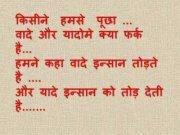 किसीने हमसे पूछा ...
वादे और यादोमे क्या फर्क
है...
हमने कहा वादे इन्सान तोड़ते
है ....
और यादे इन्सान को तोड़ देती
है.......